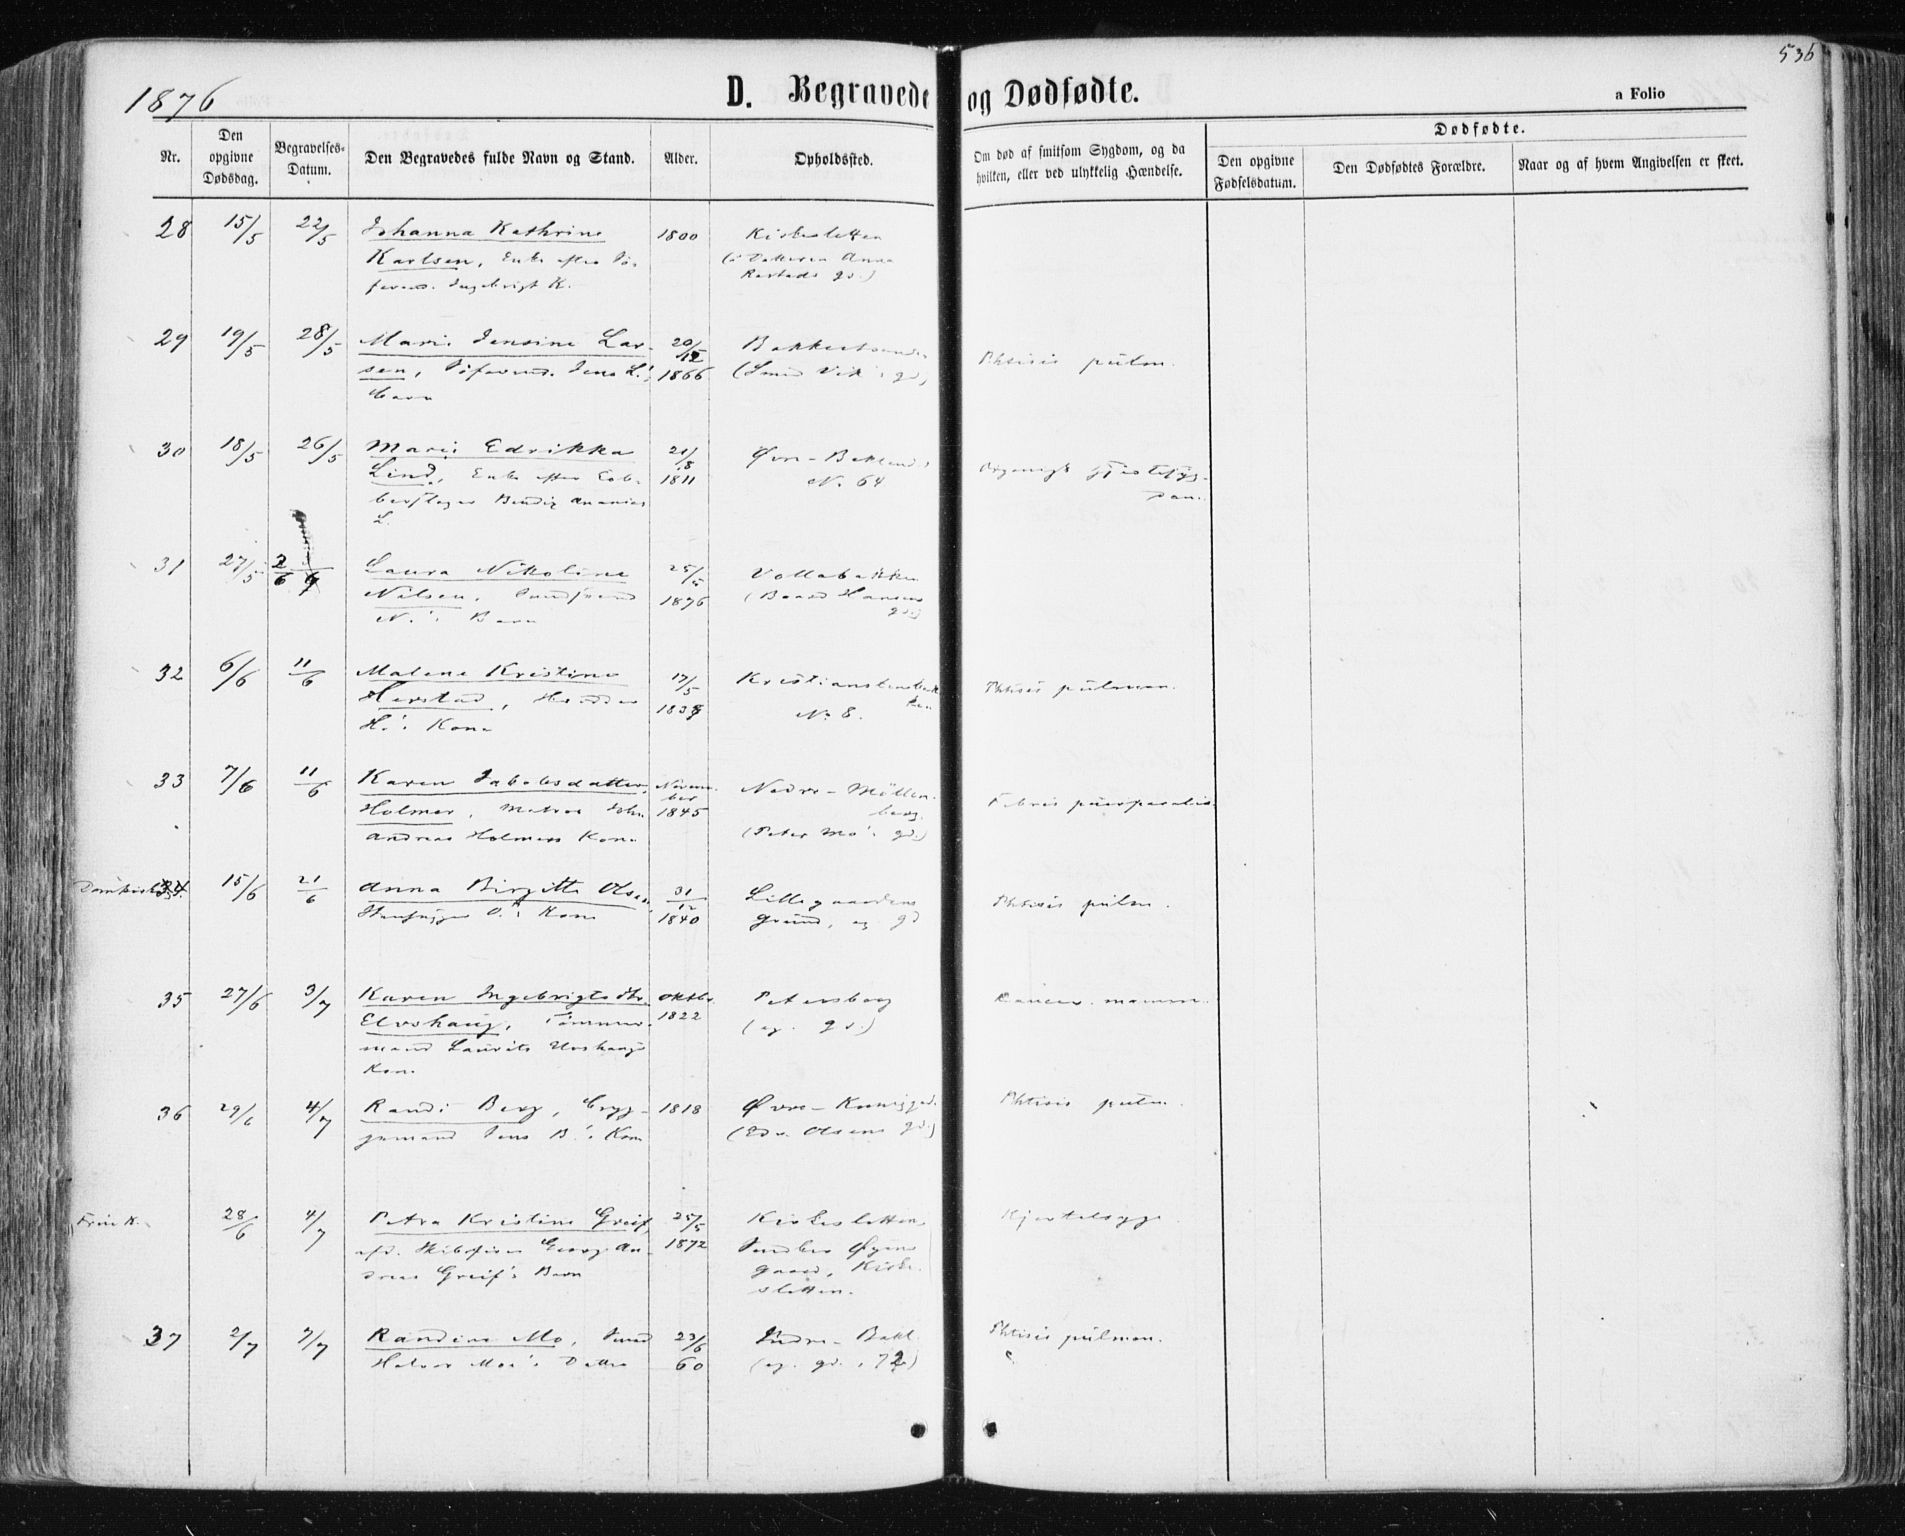 536
1876
D. Begravede og Dødfødte.
a Folio
Nr.
Den opgivne Dødsdag.
Begravelses-Datum.
Den Begravedes fulde Navn og Stand.
Alder.
Opholdssted.
Om død af smitsom Sygdom, og da hvilken, eller ved ulykkelig Hændelse.
Dødfødte.
Den opgivne Fødselsdatum.
Den Dødfødtes Forældre.
Naar og af hvem Angivelsen er skeet.
28 15/5 22/5 Johanna Kathrine 1800 Kirkesletten
Karlsen, Enke efter Sø- (i Datteren Anna
farend. Ingebrigt K. gd.)
29 19/5 28/5 Marie Jensine Lar- 20/12 Bakkestranden Phtisis pulm.
sen, Søfarend. Jens L.'s 1866 (Smed Vik's gd.)
barn
30 18/5 26/5 Marie Edrikka 21/8 Øvre-Baklands
Lind, Enke efter Cob- 1811 No. 64
berslager Bendig Ananias
L.
31 27/5 2/6 Laura Nikoline 25/5 Vollabakken
Nilsen, 1876 (Baard Hansens
N.'s Barn gd.)
32 6/6 11/6 Malene Kristine 17/5 Kristianstensbak- Phtisis pulmon.
Herstad, Handler ken
H.'s Kone No 8.
33 7/6 11/6 Karen Jakobsdatter Novem- Nedre-Möllen- Febris puerperalis
Holmer, Matros Joh. ber 1845 berg.
Andreas Holmers Kone (Peter Mo's gd.)
34 15/6 21/6 Anna Birgitte Olsen, 31/12 Lillegaardens Phtisis pulm.
O.'s Kone 1840 Grund, eg gd
35 27/6 3/7 Karen Ingebrigtsdtr. Oktbr. Petersborg Cancer mamm.
Elvshaug, Tømmer- 1822 (eg. gd.)
mand Laurits Elvshaugs
Kone
36 29/6 4/7 Randi Berg, Bryg- 1818 Øvre- Phtisis pulm.
gemand Jens B.'s Kone (Edv. Olsens gd.)
28/6 4/7 Petra Kristine Greif, 25/5 Kirkesletten Kjertelsyge
afd. Georg An- 1872 Øyens
dreas Greif's Barn gaard, Kirke-
sletten.
37 2/7 7/7 Randine Mo, Smed 23/6 Indre-Bakl. Phtisis pulmon.
Halvor Moe's Datter 60 (eg. gd., 72)